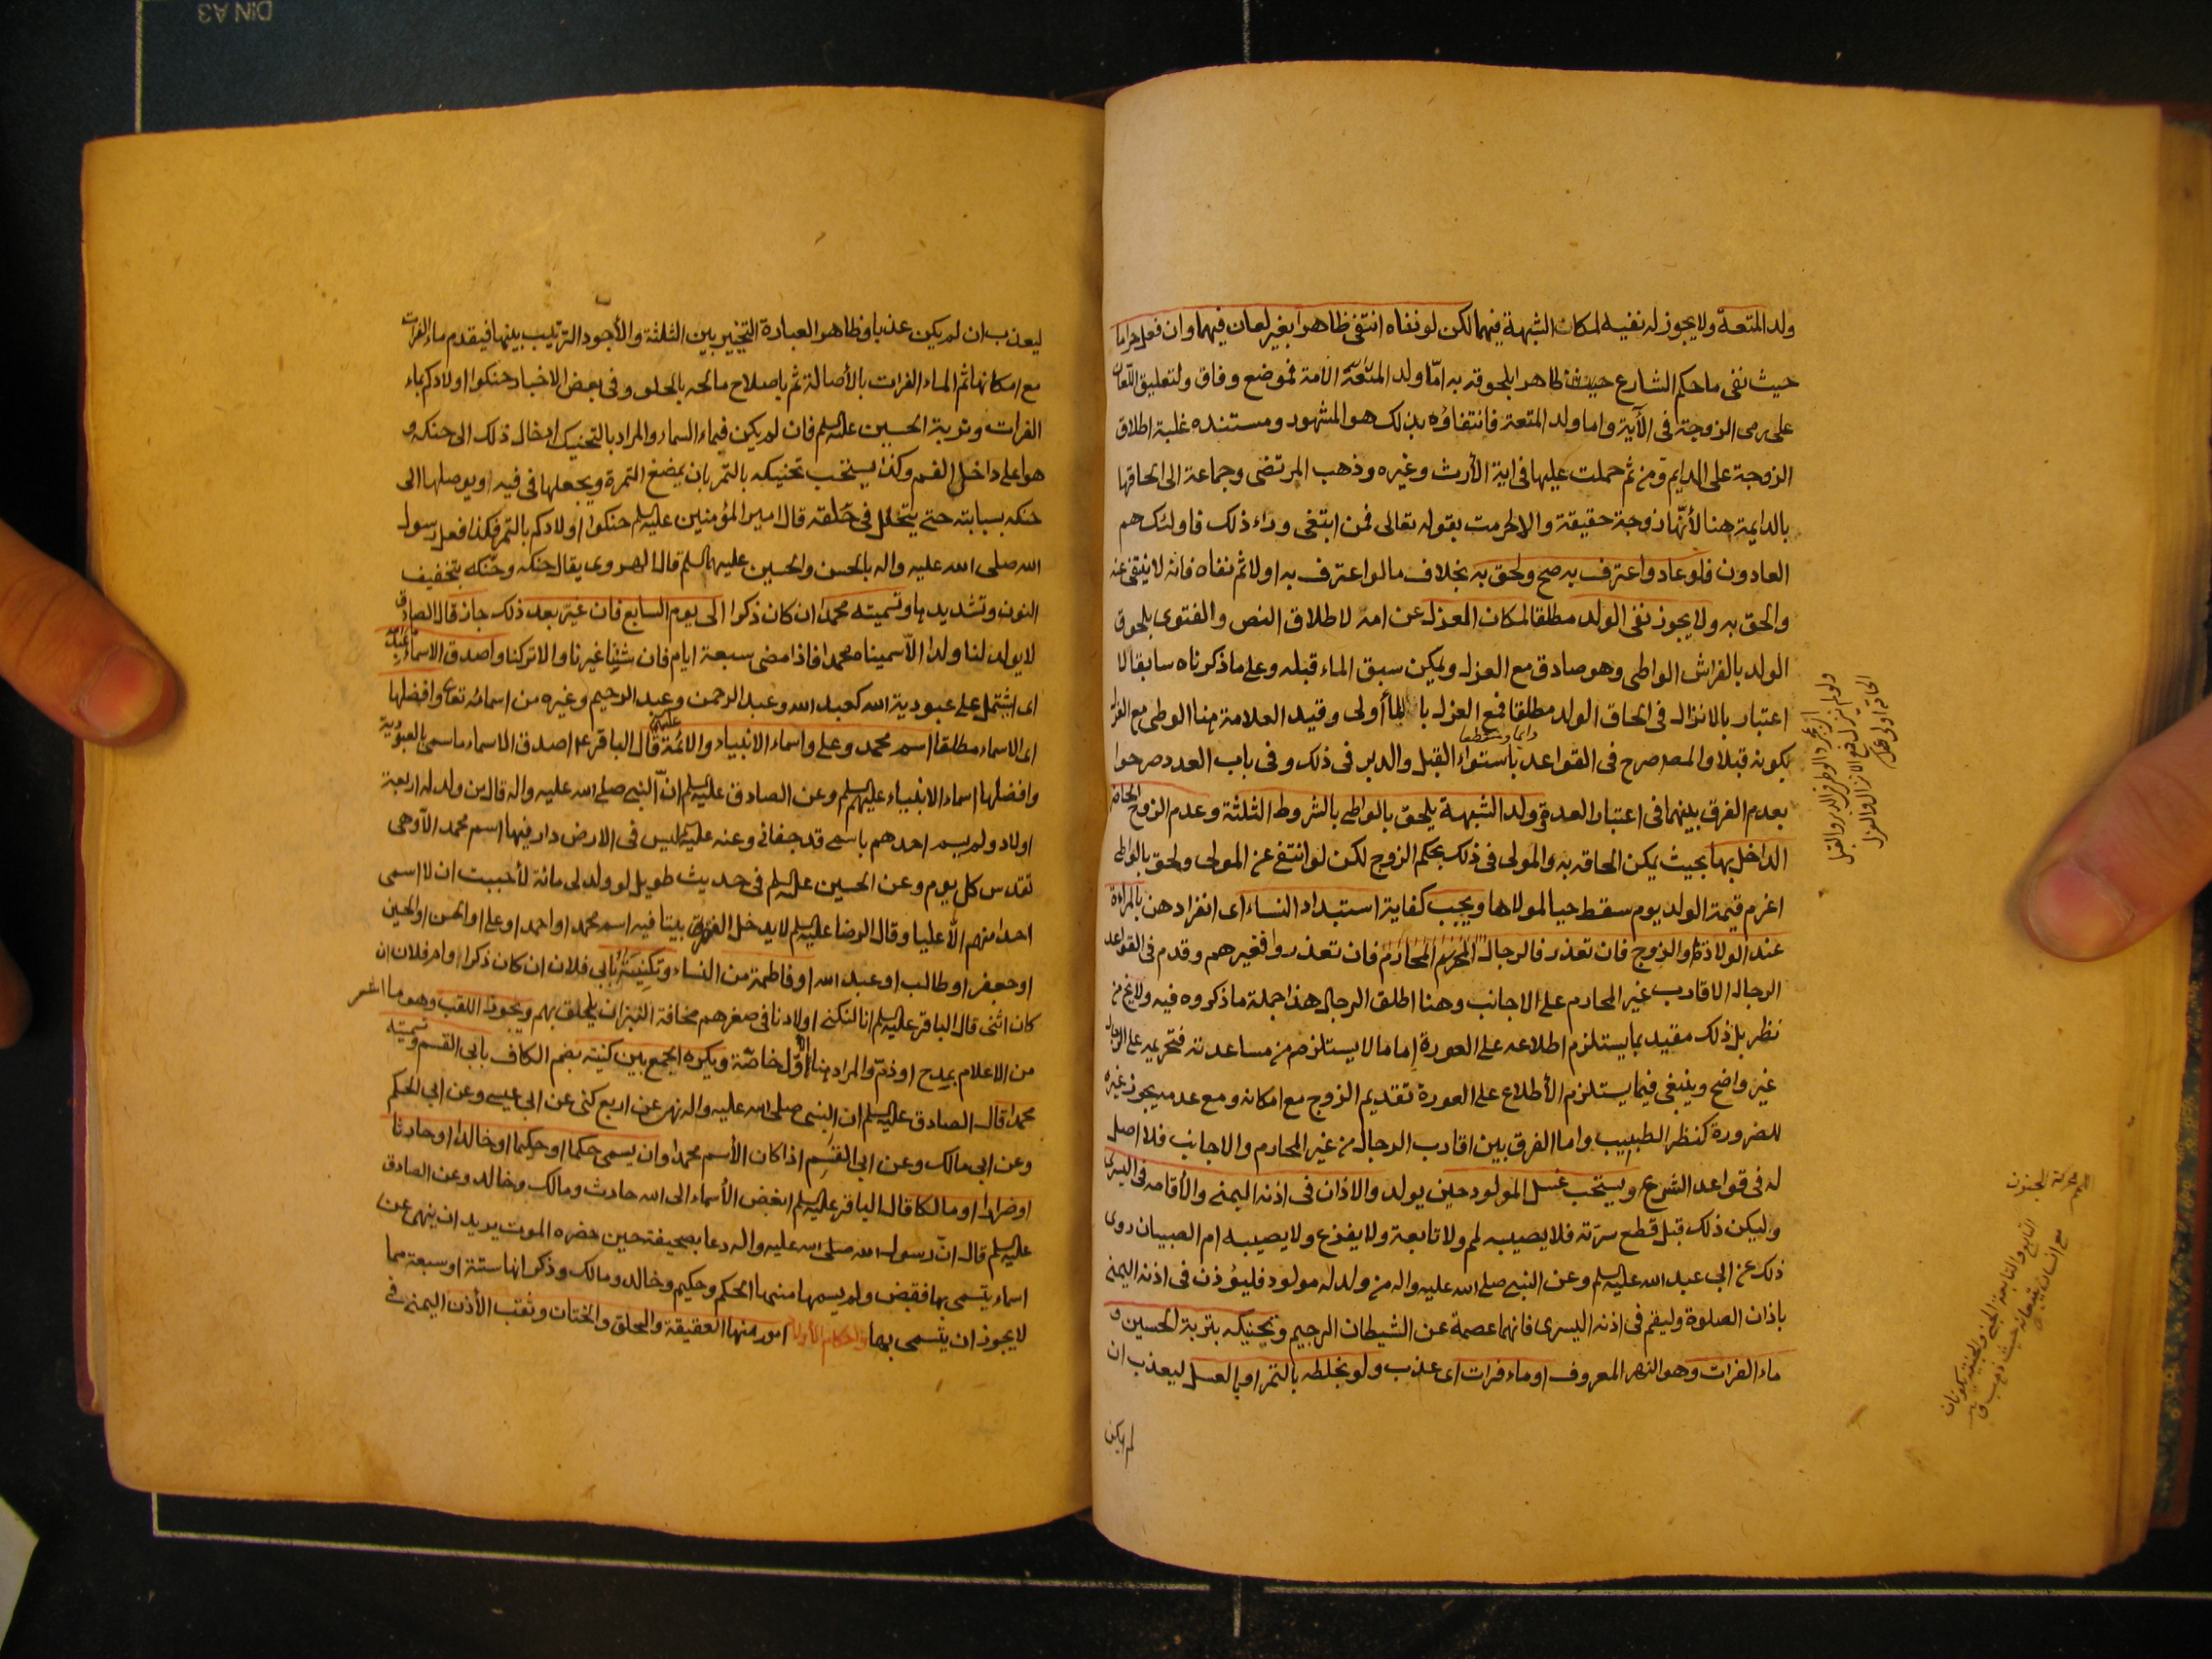 ولد المتعة ولا يجوز له نفيه لمكان الشبهة فيهما لكن لو نفاه انتفى ظاهرا بغير لعان فيهما وان فعل حراما
حيث نفى ما حكم الشارع ظاهرا بلحوقه به امّا ولد الامة فموضع وفاق ولتعليق اللعان
على رمى الزوجة فى الآية واما ولد المتعة فانتفاؤه بذلك هو المشهور ومستنده غلبة اطلاق
الزوجة على الدايم ومن ثم حملت عليها فى اية الأرث وغيره وذهب المرتضى وجماعة الى الحاقها
بالدايمة هنا لأنّها زوجة حقيقة والا لحرمت بقوله تعالى فمن ابتغى وراء ذلك فاولئك هم
العادون فلو عاد واعترف به صح ولحق به بخلاف ما لو اعترف به اولا ثم نفاه فانه لا ينتفى عنه
والحق به ولا يجوز نفى الولد مطلقا لمكان العزل عن امه لاطلاق النص والفتوى بلحوق
الولد بالفراش الواطى وهو صادق مع العزل ويمكن سبق الماء قبله وعلى ما ذكرناه سابقا لا
اعتبار بالانزال فى الحاق الولد مطلقا فمع العزل بالماء أولى وقيد العلامة هنا الوطى مع العزل
بكونه قبلا والمصر صرح فى القواعد باستواء القبل والدبر فى ذلك وفى باب العدد صرحوا
بعدم الفرق بينهما فى اعتبار العدة وولد الشبهة يلحق بالواطى بالشروط الثلثة وعدم الزوج الحاضر
الداخل بها بحيث يمكن الحاقه به والمولى فى ذلك بحكم الزوج لكن لو انتفى عن المولى ولحق بالواطى
اغرم قيمة الولد يوم سقط حيا لمولاها ويجب كفاية استبداد النساء اى انفرادهن بالمراءة
عند الولادة او الزوج فان تعذر فالرجال المحارم فان تعذروا فغيرهم وقدم فى القواعد
الرجال الاقارب غير المحارم على الاجانب وهنا اطلق الرجال هذا جملة ما ذكروه فيه ولا يخ من
نظر بل ذلك مقيد بما يستلزم اطلاعه على العورة اما ما لا يستلزم من مساعدته فتحريمه على الرجال
غير واضح وينبغى فيما يستلزم الأطلاع على العورة تقديم الزوج مع امكانه ومع عدمه يجوز غيره
للضرورة كنظر الطبيب واما الفرق بين اقارب الرجال من غير المحارم والاجانب فلا اصل
له فى قواعد الشرع ويستحب غسل المولود حين يولد والاذان فى اذنه اليمنى والأقامه فى اليسرى
وليكن ذلك قبل قطع سرّته فلا يصيبه لمم ولا تابعة ولا يفزع ولا يصيبه ام الصبيان روى
ذلك عن ابى عبد الله عليه السلم وعن النبى صلى الله عليه واله من ولد له مولود فليؤذن فى اذنه اليمنى
باذان الصلوة وليقم فى اذنه اليسرى فانها عصمة عن الشيطان الرجيم وتحنيكه بتربة الحسين و
ماء الفرات وهو النهر المعروف او ماء فرات اى عذب ولو بخلطه بالتمر او بالعسل ليعذب ان
لم يكن
ليعذب ان لم يكن عذبا وظاهر العبارة التخيير بين الثلثة والأجود الترتيب بينها فيقدم ماء الفرات
مع امكانها ثم الماء الفرات بالأصالة ثم باصلاح مالحه بالحلو وفى بعض الاخبار حنكوا اولادكم بماء
الفرات وتربة الحسين عليه السلم فان لم يكن فبماء السماء والمراد بالتحنيك ادخال ذلك الى حنكه و
هو اعلى داخل الفم وكذا يستحب تحنيكه بالتمر بان يمضغ التمرة ويجعلها فى فيه او يوصلها الى
حنكه بسبابته حتى يتحلل فى حلقه قال امير المؤمنين عليه السلم حنكوا اولادكم بالتمر فكذا فعل رسول
الله صلى الله عليه واله بالحسن والحسين عليهما السلم قال الهروى يقال حنكه وحنّكه بتخفيف
النون وتشديدها وتسميته محمدا ان كان ذكرا الى يوم السابع فان غيّر بعد ذلك جاز قال الصادق
لا يولد لنا ولدا الّا سميناه محمدا فاذا مضى سبعة ايام فان شئنا غيرنا والا تركنا واصدق الاسماء
اى اشتمل على عبودية الله كعبد الله وعبد الرحمن وعبد الرحيم وغيره من اسمائه تعالى وافضلها
اى الاسماء مطلقا اسم محمد وعلى واسماء الانبياء والائمة قال الباقر ع اصدق الاسماء ما سمى بالعبودية
وافضلها اسماء الانبياء عليهم السلم وعن الصادق عليه السلم انّ النبى صلى الله عليه واله قال من ولد له اربعة
اولاد ولم يسم احدهم باسمى فقد جفانى وعنه عليه السلم ليس فى الارض دار فيها اسم محمد الّا وهى
تقدس كل يوم وعن الحسين عليه السلم فى حديث طويل لو ولد لى مائة لأحببت ان لا اسمى
احدا منهم الّا عليا وقال الرضا عليه السلم لا يدخل الفقر بيتا فيه اسم محمد او احمد او على او الحسن او الحسين
او جعفر او طالب او عبد الله او فاطمة من النساء وتكنيته بابى فلان ان كان ذكرا او ام فلان ان
كان انثى قال الباقر عليه السلم انا لنكنى اولادنا فى صغرهم مخافة النبز ان يلحق بهم ويجوز اللقب وهو ما اشعر
من الاعلام بمدح او ذم والمراد هنا الاوّل خاصّة ويكره الجمع بين كنيته بضم الكاف بابى القسم وتسميته
محمدا قال الصادق عليه السلم ان النبى صلى الله عليه واله نهى عن اربع كنى عن ابى عيسى وعن ابى الحكم
وعن ابى مالك وعن ابى القسم اذا كان الأسم محمدا وان يسمى حكما او حكيما او خالدا او حارثا
او ضرارا او مالكا قال الباقر عليه السلم ابغض الأسماء الى الله حارث ومالك وخالد وعن الصادق
عليه السلم قال انّ رسول الله صلى الله عليه واله دعا بصحيفة حين حضره الموت يريد ان ينهى عن
اسماء يتسمى بها فقبض ولم يسمها منها الحكم وحكيم وخالد ومالك وذكر انها ستة او سبعة مما
لا يجوز ان يتسمى بها واحكام الأولاد امور منها العقيقة والحلق والختان وثقب الأذن اليمنى فى